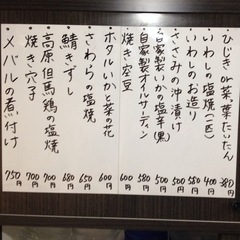 ひじき or 菜、菜たいたん 380
いわしの塩焼(二匹) 400
いわしのお造り 580
ささみの沖漬け 500
自家製いかの塩辛(黒) 500
自家製オイルサーディン 580
焼き空豆 600
ホタルいかと菜の花 600
さわらの塩焼 650
鯖きずし 680
高原但馬鶏の塩焼 700
焼き穴子 700
メバルの煮付け 750